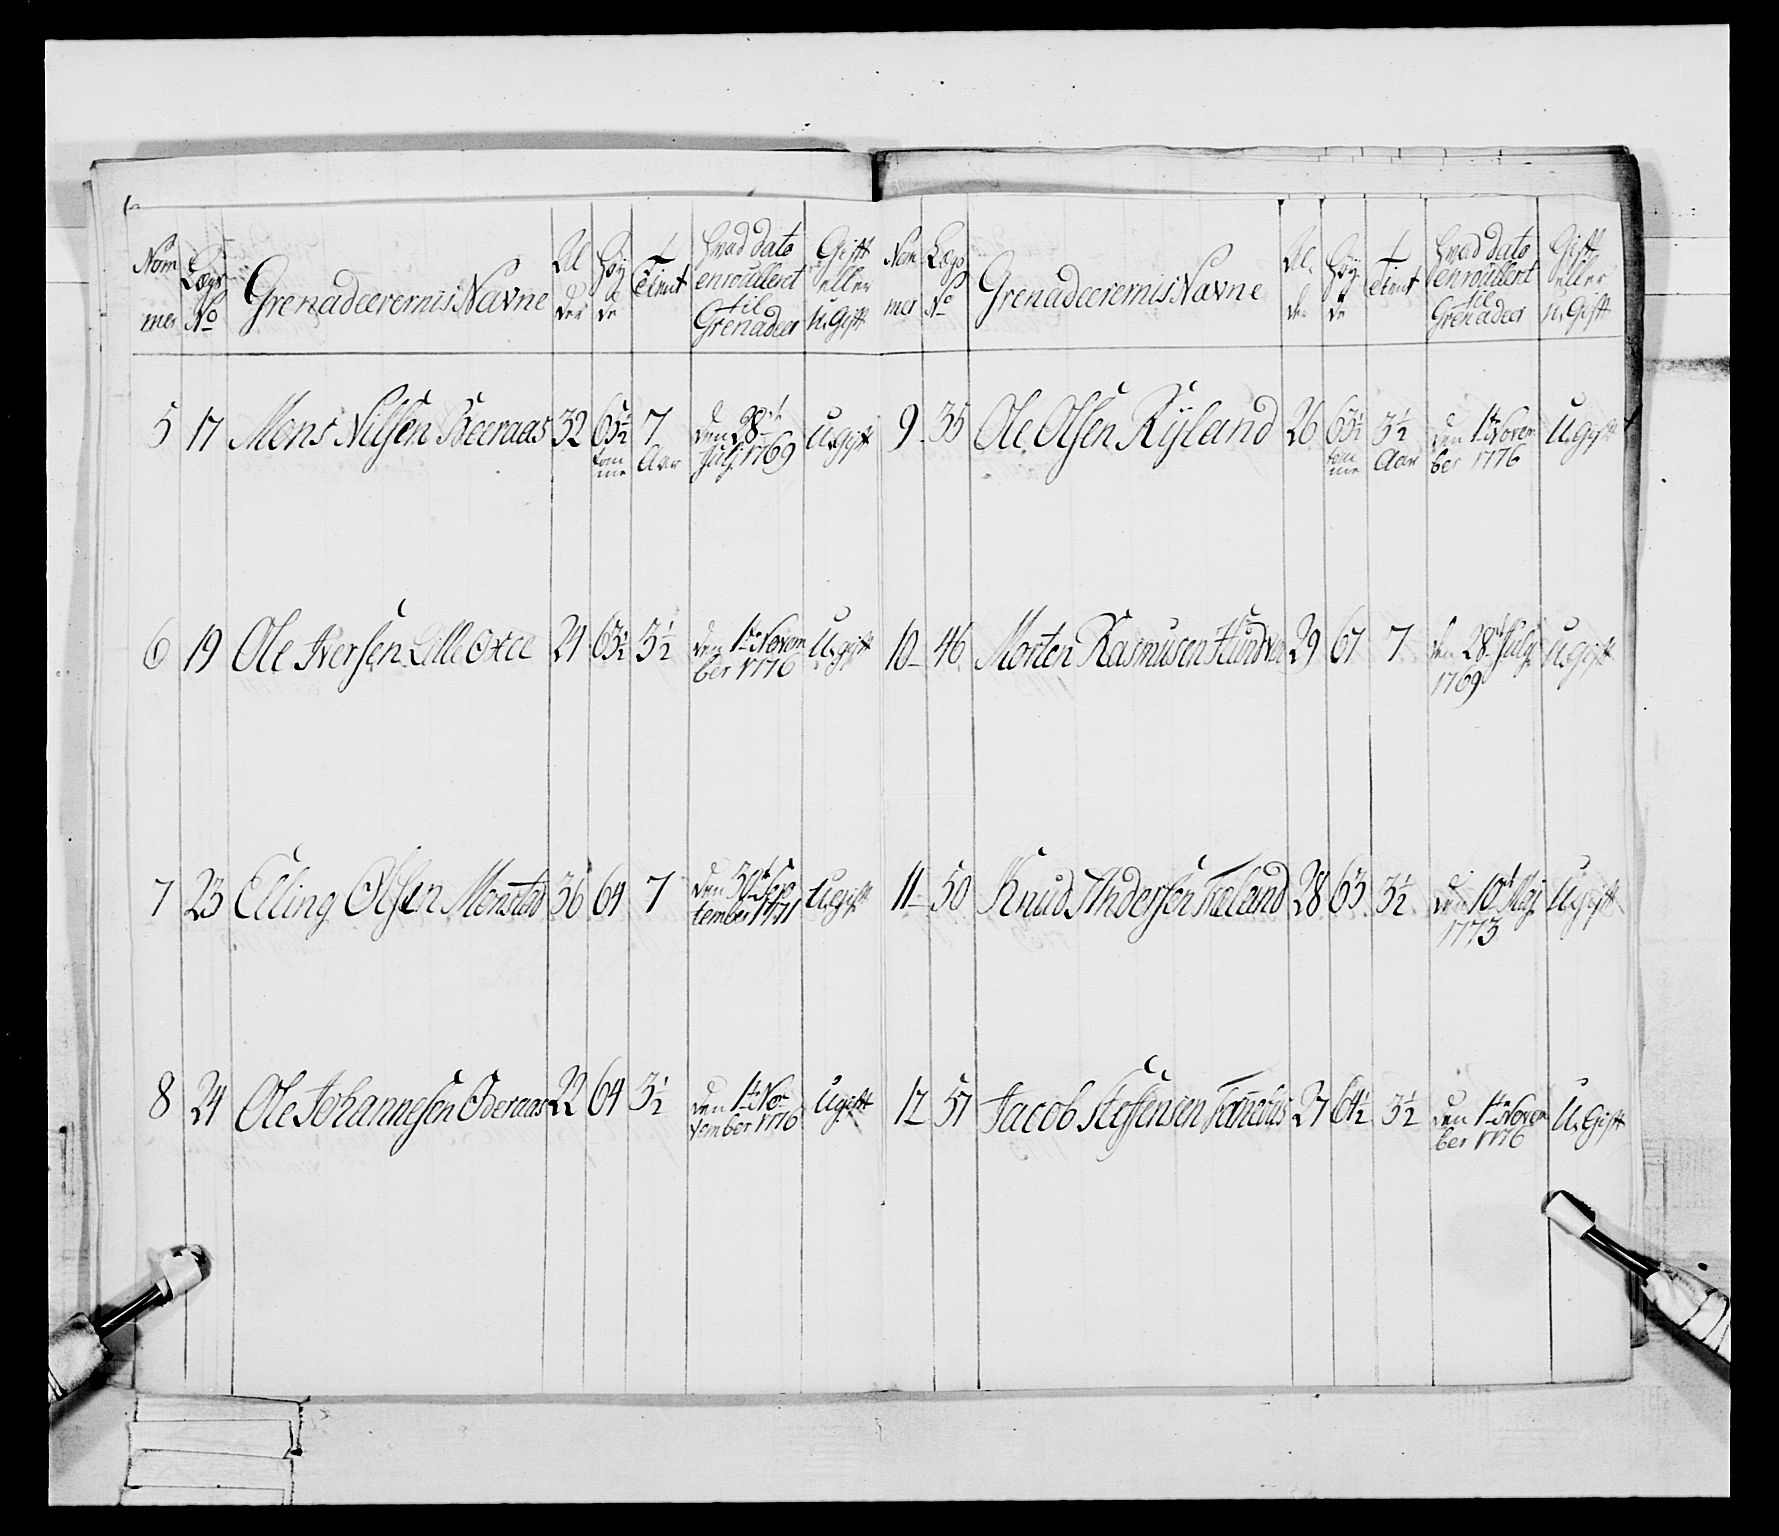 Nom mer | Lægs No | Grenadeerernis Navne | Al der | Høy de | Tient | Hvad dato enroullert til Grenadeer | Gift eller u. Gift
5 | 17 | Mons Nilsen Beeraas | 32 | 65½ tom me | 7 Aar | den 28de Julj 1769 | U. gift
6 | 19 | Ole Iversen Lille Oxee | 24 | 63½ | 3½ | den 1te Novem ber 1776 | U. gift
7 | 23 | Elling Olsen Monstad | 36 | 64 | 7 | den 30te Sep tember 1771 | U gift
8 | 24 | Ole Johannesen Oderaas | 22 | 64 | 3½ | den 1te No vember 1776 | Ugift
Nom mer | Lægs No | Grenadeerernis Navne | Al der | Høy de | Tient | Hvad dato enroullert til Grenadeer | Gift eller u. Gift
9 | 35 | Ole Olsen Ryland | 26 | 63½ tom me | 3½ Aar | den 1te Novem ber 1776 | U. gift
10 | 46 | Morten Rasmusen Hundven | 29 | 67 | 7 | den 28de Julj 1769 | U. gift
11 | 50 | Knud Andersen Fæland | 28 | 63 | 3½ | den 10de Maj 1773 | U. gift
12 | 57 | Jacob Steffensen | 27 | 64½ | 3½ | den 1te Novem ber 1776 | U. Gift